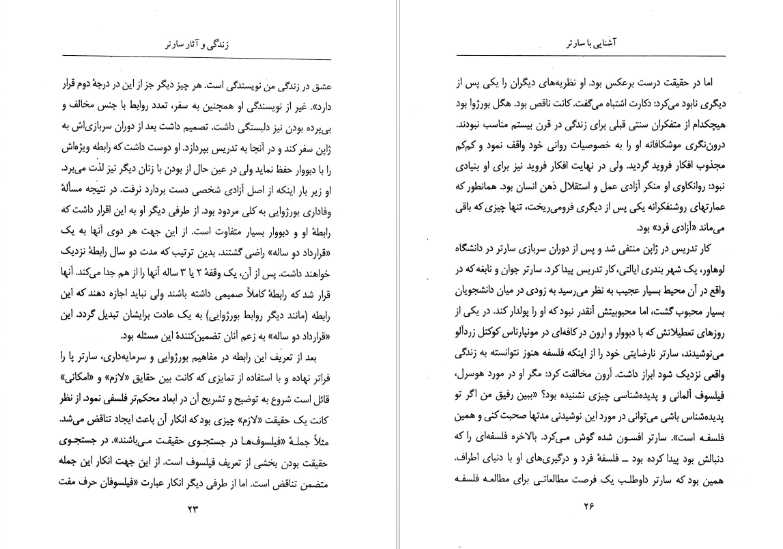 آشنایی با سارتر
اما در حقیقت درست برعکس بود. او نظریه‌های دیگران را یکی پس از
دیگری نابود می‌کرد: دکارت اشتباه می‌گفت. کانت ناقص بود. هگل بورژوا بود
هیچکدام از متفکران سنتی قبلی برای زندگی در قرن بیستم مناسب نبودند.
درون‌نگری موشکافانه او را به خصوصیات روانی خود واقف نمود و کم‌کم
مجذوب افکار فروید گردید. ولی در نهایت افکار فروید نیز برای او بنیادی
نبود: روانکاوی او منکر آزادی عمل و استقلال ذهن انسان بود. همانطور که
عمارتهای روشنفکرانه یکی پس از دیگری فرومی‌ریخت، تنها چیزی که باقی
می‌ماند «آزادی فرد» بود.
کار تدریس در ژاپن منتفی شد و پس از دوران سربازی سارتر در دانشگاه
لوهاور، یک شهر بندری ایالتی، کار تدریس پیدا کرد. سارتر جوان و نابغه که در
واقع در آن محیط بسیار عجیب به نظر می‌رسید به زودی در میان دانشجویان
بسیار محبوب گشت، اما محبوبیتش آنقدر نبود که او را پولدار کند. در یکی از
روزهای تعطیلاتش که با دبووار و ارون در کافه‌ای در مونپارناس کوکتل زردآلو
می‌نوشیدند، سارتر نارضایتی خود را از اینکه فلسفه هنوز نتوانسته به زندگی
واقعی نزدیک شود ابراز داشت. آرون مخالفت کرد: مگر او در مورد هوسرل،
فیلسوف آلمانی و پدیده‌شناسی چیزی نشنیده بود؟ «ببین رفیق من اگر تو
پدیده‌شناس باشی می‌توانی در مورد این نوشیدنی مدتها صحبت کنی و همین
فلسفه است». سارتر افسون شده گوش می‌کرد. بالاخره فلسفه‌ای را که
دنبالش بود پیدا کرده بود ــ فلسفهٔ فرد و درگیری‌های او با دنیای اطراف.
همین بود که سارتر داوطلب یک فرصت مطالعاتی برای مطالعه فلسفه
۲۶
زندگی و آثار سارتر
عشق در زندگی من نویسندگی است. هر چیز دیگر جز از این در درجهٔ دوم قرار
دارد». غیر از نویسندگی او همچنین به سفر، تعدد روابط با جنس مخالف و
بی‌پرده بودن نیز دلبستگی داشت. تصمیم داشت بعد از دوران سربازی‌اش به
ژاپن سفر کند و در آنجا به تدریس بپردازد. او دوست داشت که رابطه ویژه‌اش
را با دبووار حفظ نماید ولی در عین حال از بودن با زنان دیگر نیز لذت می‌برد.
او زیر بار اینکه از اصل آزادی شخصی دست بردارد نرفت. در نتیجه مسألهٔ
وفاداری بورژوایی به کلی مردود بود. از طرفی دیگر او به این اقرار داشت که
رابطهٔ او و دبووار بسیار متفاوت است. از این جهت هر دوی آنها به یک
«قرارداد دو ساله» راضی گشتند. بدین ترتیب که مدت دو سال رابطهٔ نزدیک
خواهند داشت. پس از آن، یک وقفهٔ ۲ یا ۳ ساله آنها را از هم جدا می‌کند. آنها
قرار شد که رابطهٔ کاملاً صمیمی داشته باشند ولی نباید اجازه دهند که این
رابطه (مانند دیگر روابط بورژوایی) به یک عادت برایشان تبدیل گردد. این
«قرارداد دو ساله» به زعم آنان تضمین‌کنندهٔ این مسئله بود.
بعد از تعریف این رابطه در مفاهیم بورژوایی و سرمایه‌داری، سارتر پا را
فراتر نهاده و با استفاده از تمایزی که کانت بین حقایق «لازم» و «امکانی»
قائل است شروع به توضیح و تشریح آن در ابعاد محکم‌تر فلسفی نمود. از نظر
کانت یک حقیقت «لازم» چیزی بود که انکار آن باعث ایجاد تناقض می‌شد.
مثلاً جملهٔ «فیلسوف‌ها در جستجوی حقیقت می‌باشند». در جستجوی
حقیقت بودن بخشی از تعریف فیلسوف است. از این جهت انکار این جمله
متضمن تناقض است. اما از طرفی دیگر انکار عبارت «فیلسوفان حرف مفت
۲۳